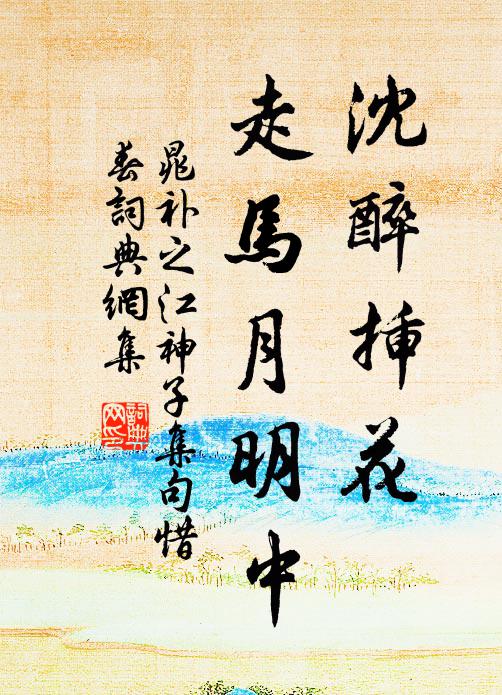 沈醉挿花
走馬月明中
晁补之江神子集句惜
春詞典網集
詞典
网印